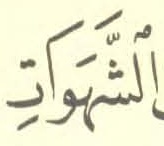 ٱلشَّهَوَاتِ